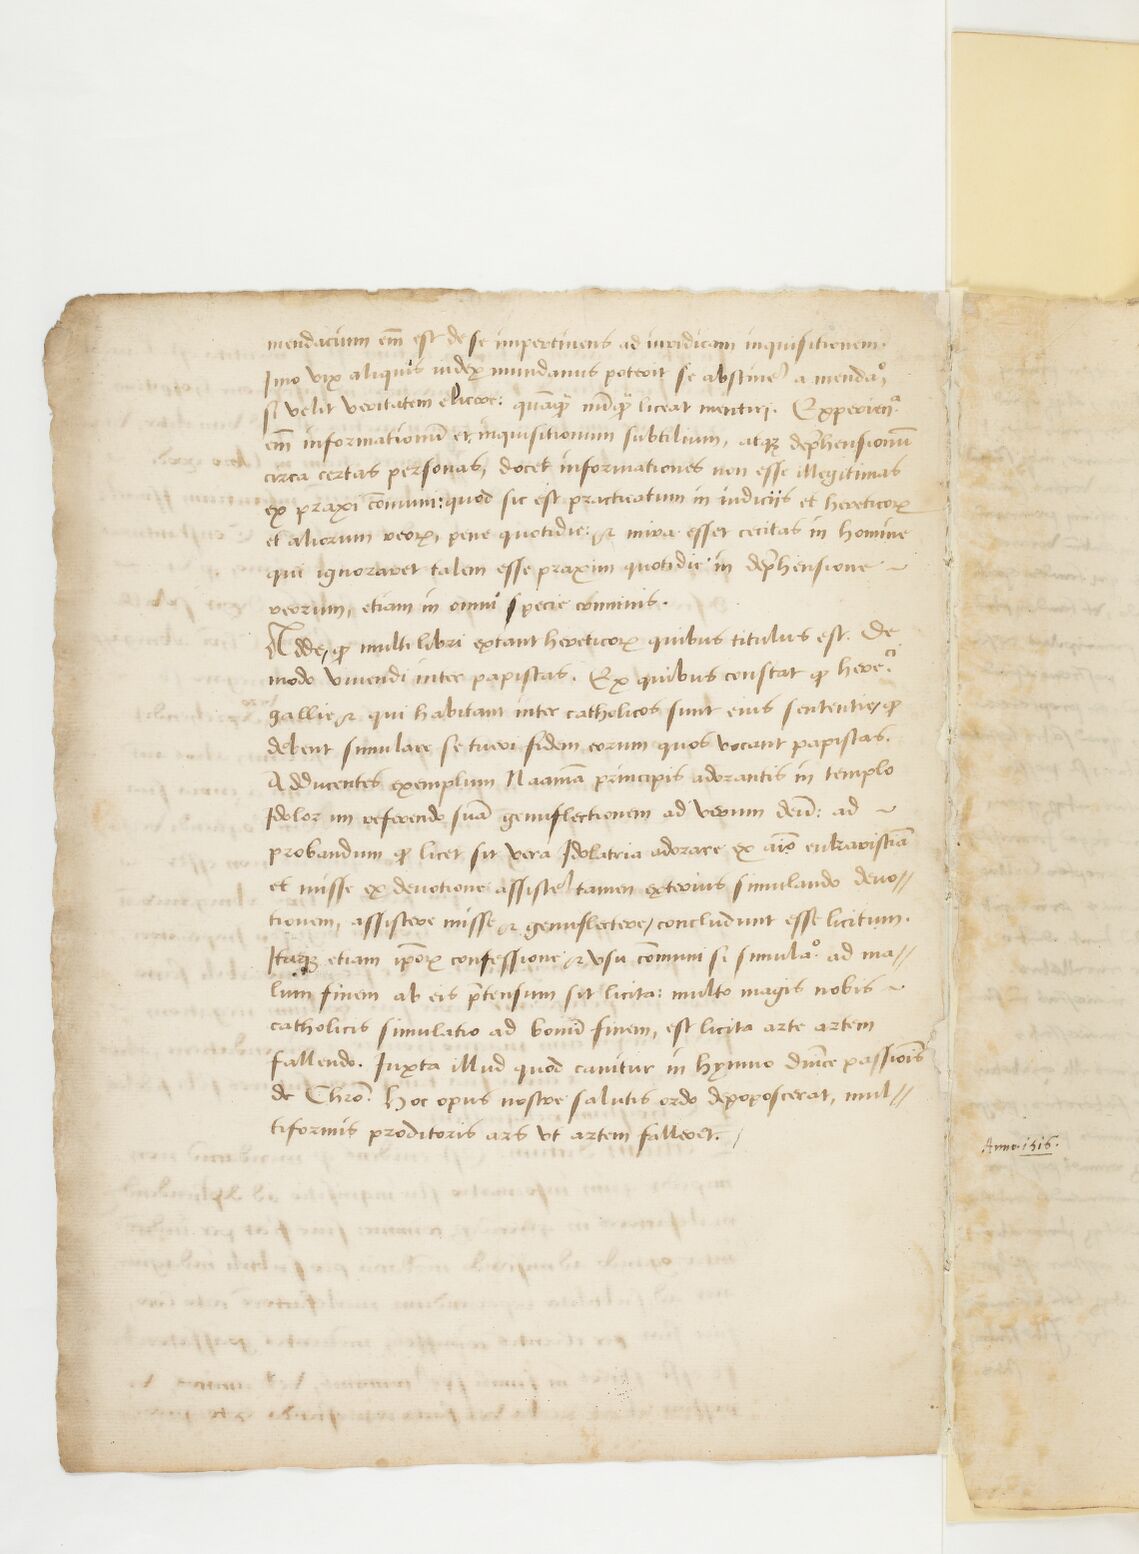 mendacium em̄ est de se impertinens ad iuridicam inquisitionem.
Imo vix aliquis iudex mundanus poterit se abstine͛ a menda.º,
si velit veritatem elicere: quāq̄ȝ nūq̄ȝ liceat mentirj. Experien.ª
em̄ informationū et inquisitionum subtilium, atqȝ dep̄hensionū
circa certas personas, docet informationes non esse illegitimas
ex praxi cōmuni: quod sic est practicatum in iudiciis et hereticoꝝ
et aliorum reoꝝ, pene quotidie: ⁊ mira esset cecitas in homine
qui ignoraret talem esse praxim quotidie in dep̄hensione ~
reorum, etiam in omni specie criminis.
Adde, ꝙ multi libri extant hereticoꝝ quibus titulus est. De
modo viuendi inter papistas. Ex quibus constat ꝙ here.ci
gallie ⁊ qui habitant inter catholicos sunt eius sententie, ꝙ
debent simulare se tueri fidem eorum quos vocant papistas.
Adducentes exemplum Naamā principis adorantis in templo
Idolorum referendo suā genuflectionem ad verum deū: ad ~
probandum ꝙ licet sit vera Idolatria adorare ex aīo eukaristiā
et misse ex deuotione assiste͛ tamen exterius simulando deuo//
tionem, assistere misse ⁊ genuflectere, concludunt esse licitum.
Itaqȝ etiam ip̄oꝝ confessione ⁊ vsu cōmuni si simula.º ad ma//
lum finem ab eis p̄tensum sit licita: multo magis nobis ~
catholicis simulatio ad bonū finem, est licita arte artem
fallendo. Iuxta illud quod canitur in hymno dn̄ice passionis
de Chr̄o. Hoc opus nostre salutis ordo depoposcerat, mul//
tiformis proditoris ars vt artem falleret. /
Anno. 1515.